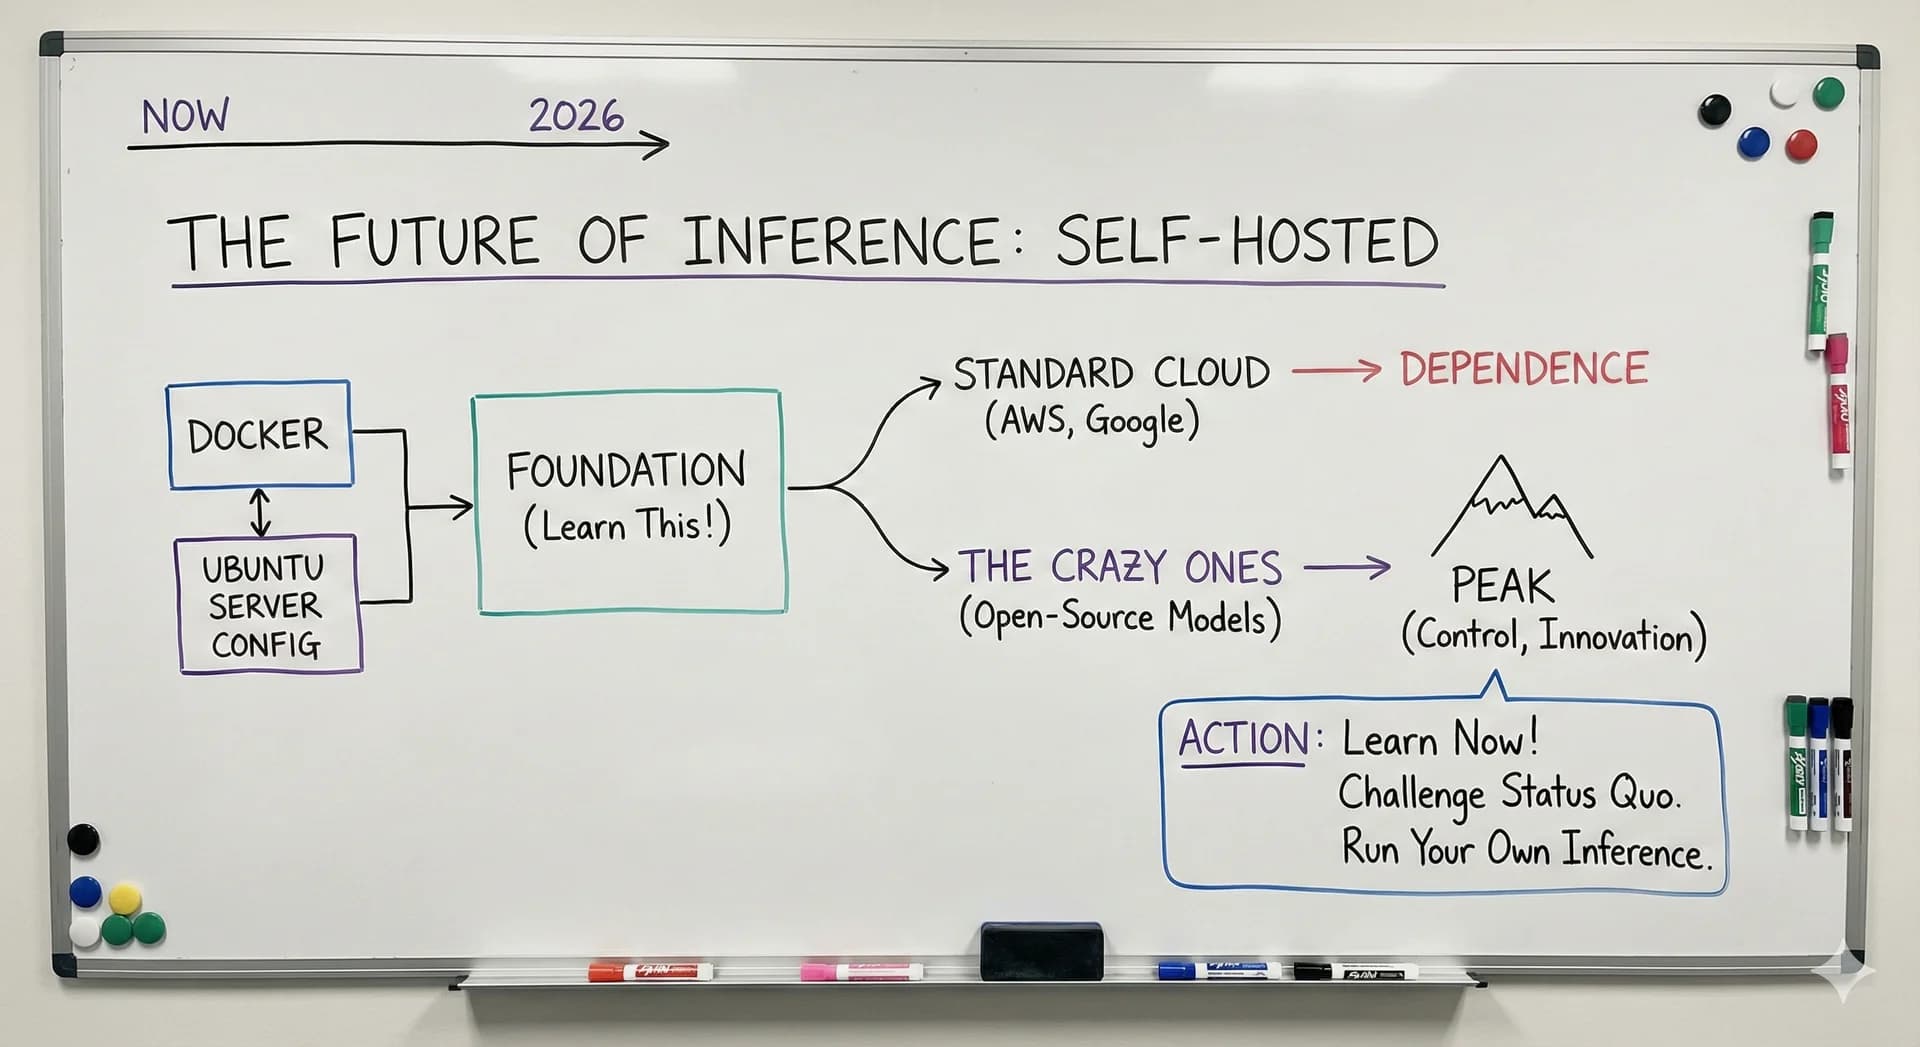 NOW 2026
THE FUTURE OF INFERENCE: SELF-HOSTED
DOCKER
UBUNTU
SERVER
CONFIG
FOUNDATION
(Learn This!)
STANDARD CLOUD
(AWS, Google)
DEPENDENCE
THE CRAZY ONES
(Open-Source Models)
PEAK
(Control, Innovation)
ACTION: Learn Now!
Challenge Status Quo.
Run Your Own Inference.